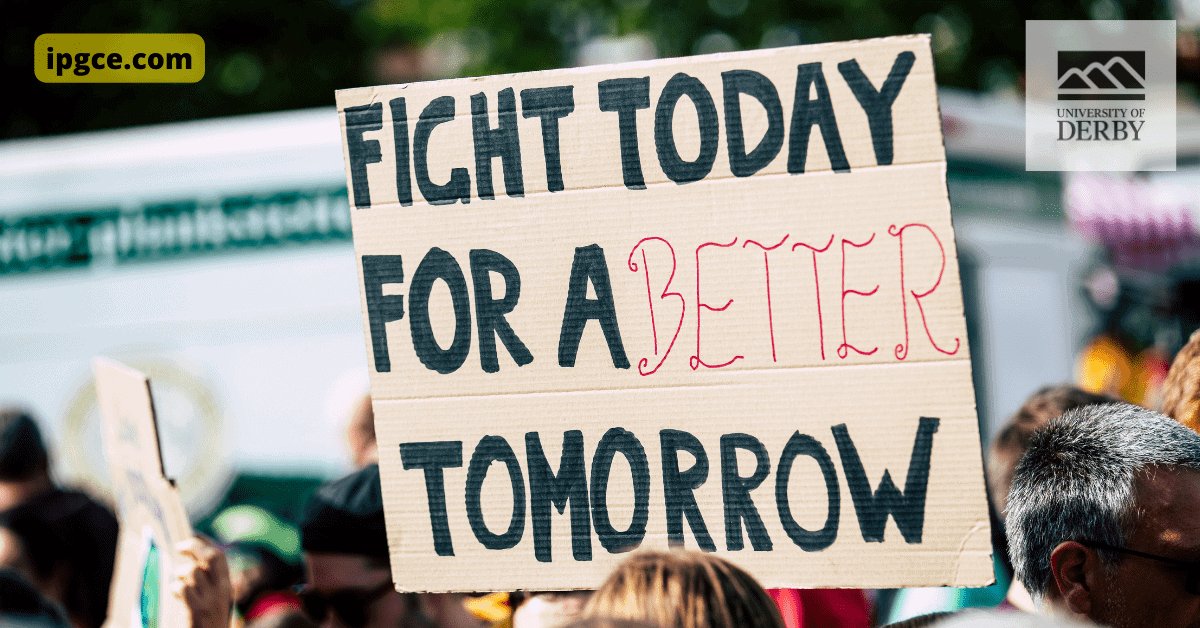 ipgce.com
UNIVERSITY OF
DERBY
FIGHT TODAY
FOR A BETTER
TOMORROW